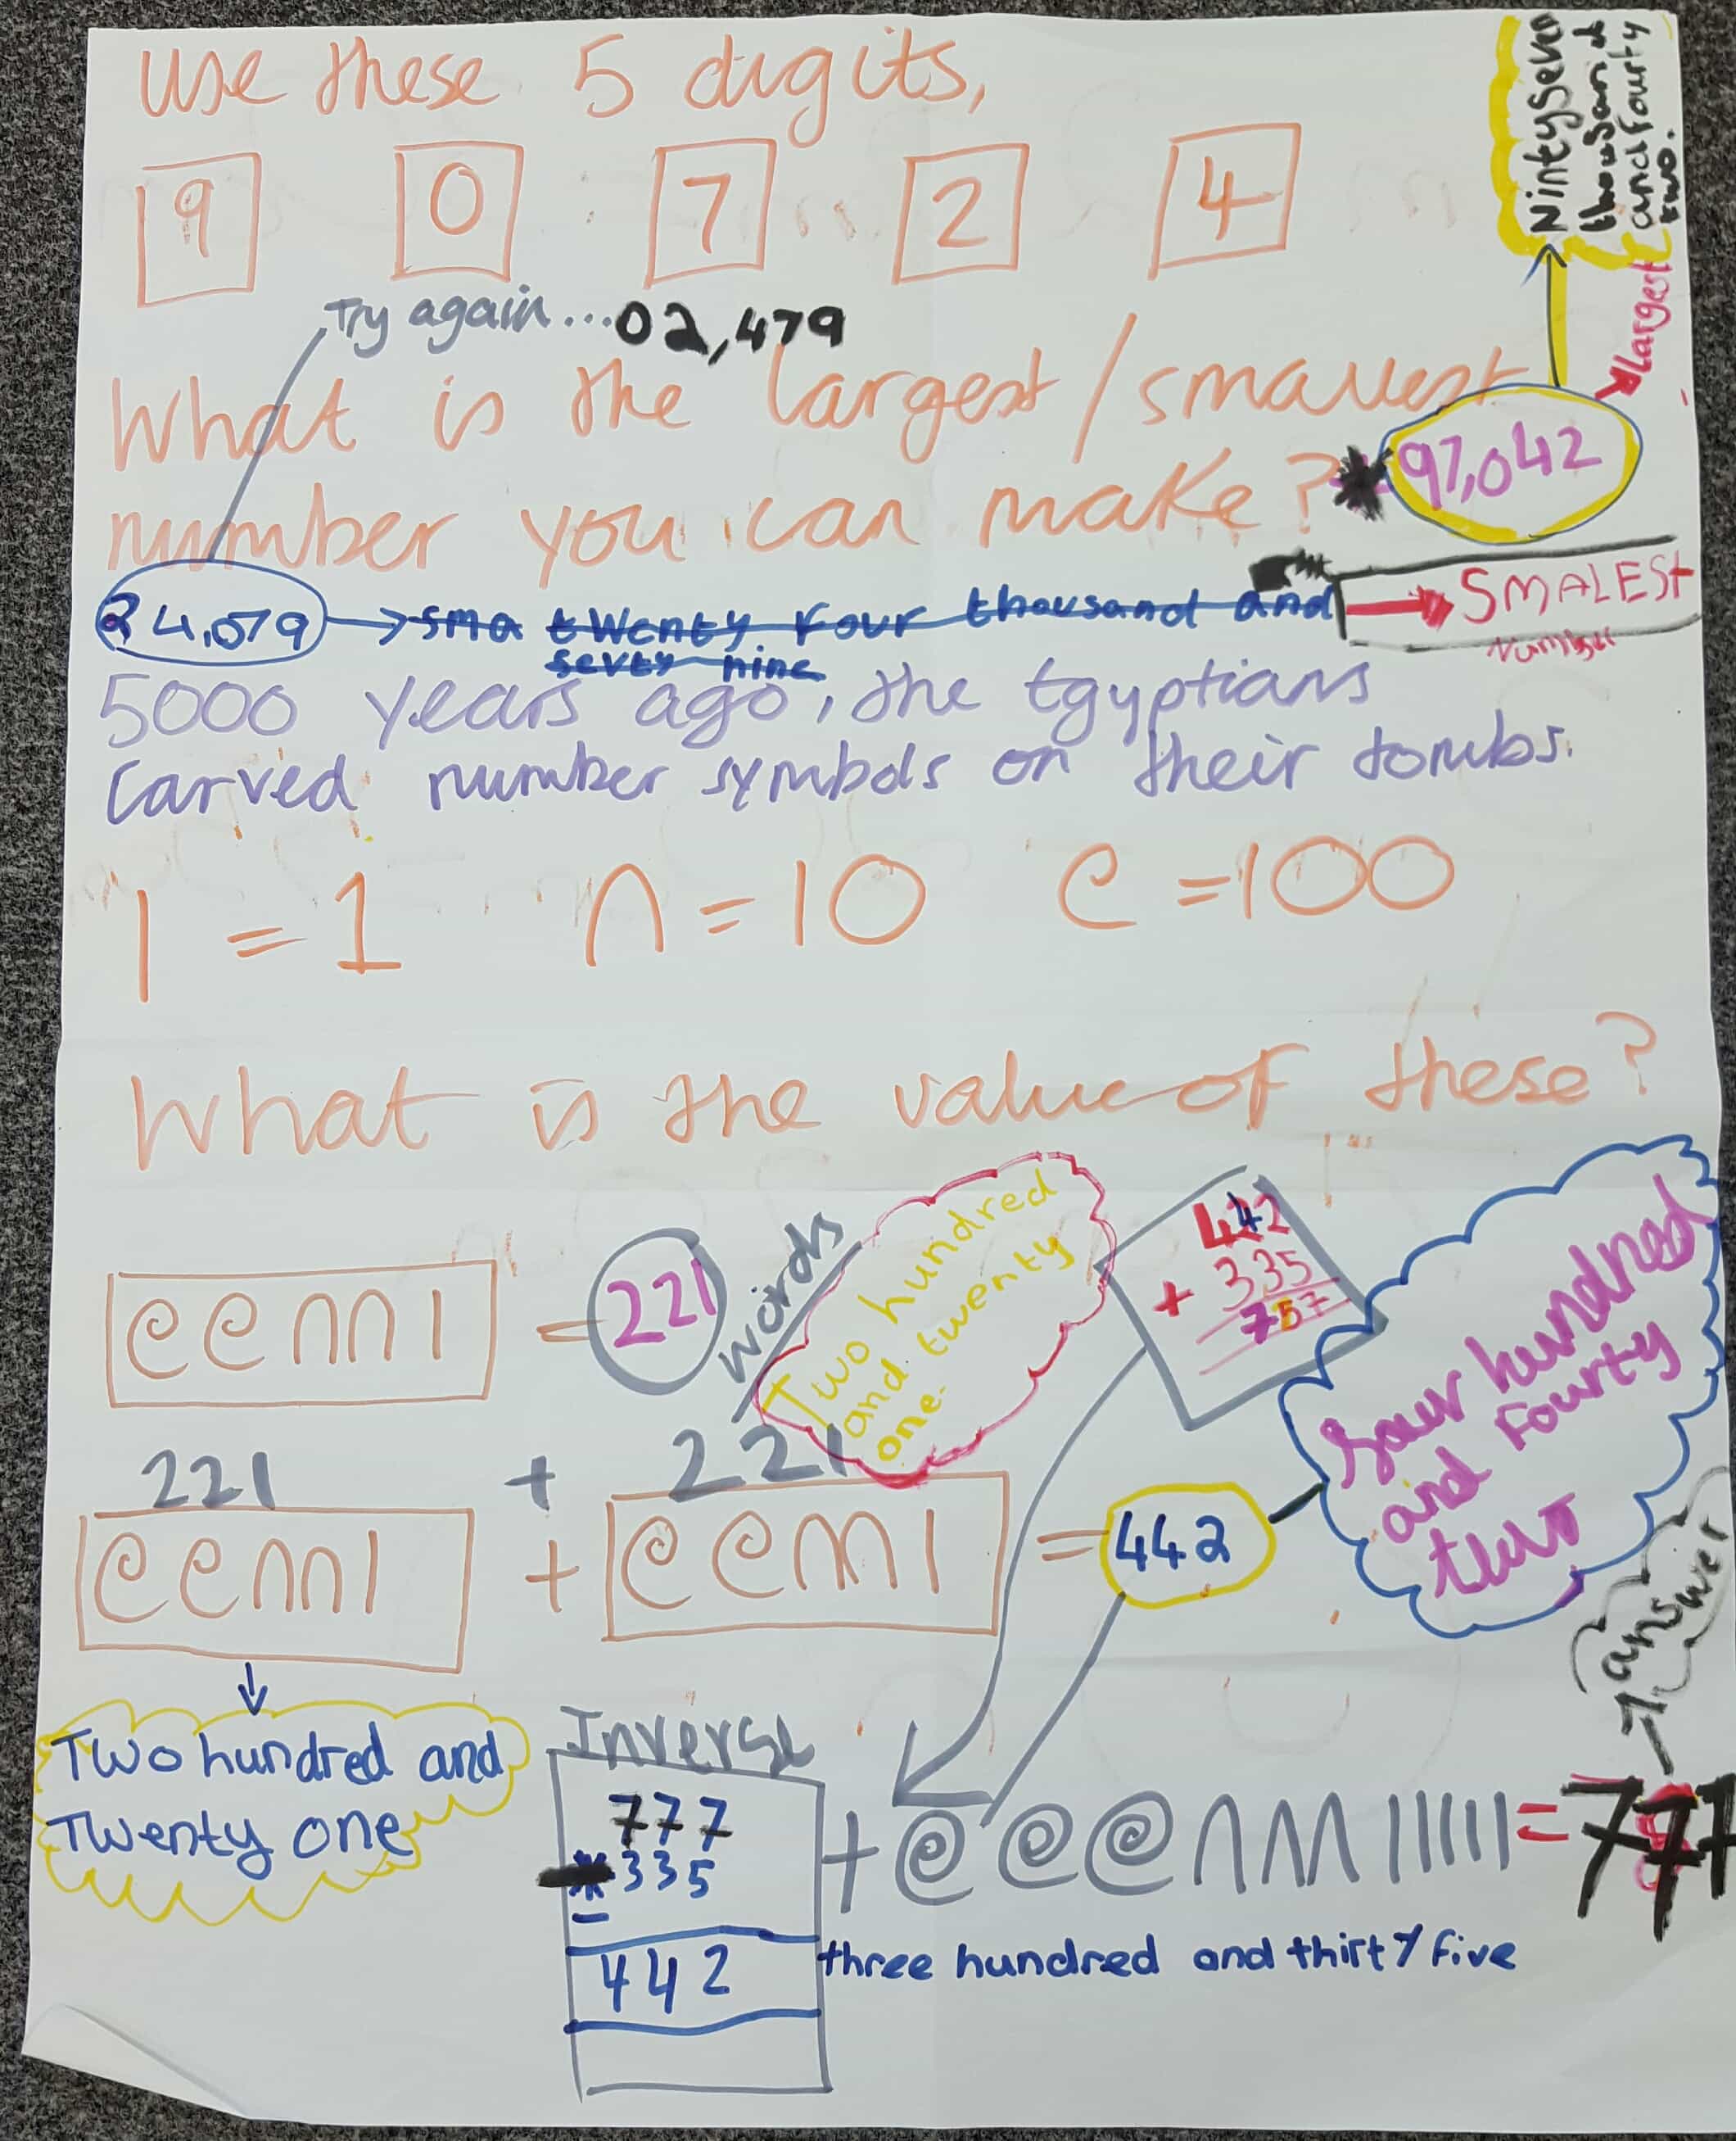 Use these 5 digits,
9 0 7 2 4
Try again...02,479
What is the largest/smallest
number you can make?
97,042
Largest
NintySeven
thousand
and fourty
two.
24,079 → sma twenty four thousand and
sevty nine
→ SMALEST
Number
5000 years ago, the Egyptians
carved number symbols on their tombs.
I = 1 ∩ = 10 e = 100
What is the value of these?
ee∩∩I = 221
words
Two hundred
and twenty
one.
442
+ 335
757
four hundred
and Fourty
two
221 + 221
ee∩∩I + ee∩∩I = 442
Two hundred and
Twenty one
answer
Inverse
777
335
-
442
+ eee∩∩∩IIIII = 777
three hundred and thirty five